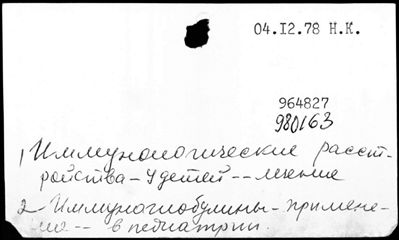 04.I2.78 Н.К.
964827
980163
1 Иммунологические расст-
ройства - у детей -- лечение
2 Иммуноглобулины - примене-
ние -- в педиатрии.